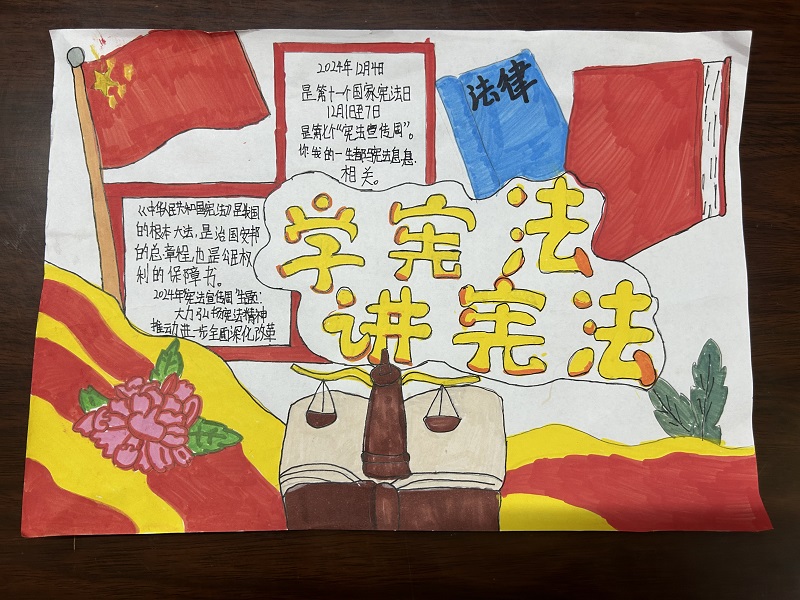 2024年12月4日
是第十一个国家宪法日
12月1日至7日
是第七个“宪法宣传周”。
你我的一生都与宪法息息
相关。
法律
《中华人民共和国宪法》是我国
的根本大法,是治国安邦
的总章程,也是公民权
利的保障书。
2024年“宪法宣传周”主题:
大力弘扬宪法精神
推动进一步全面深化改革
学宪法
讲宪法